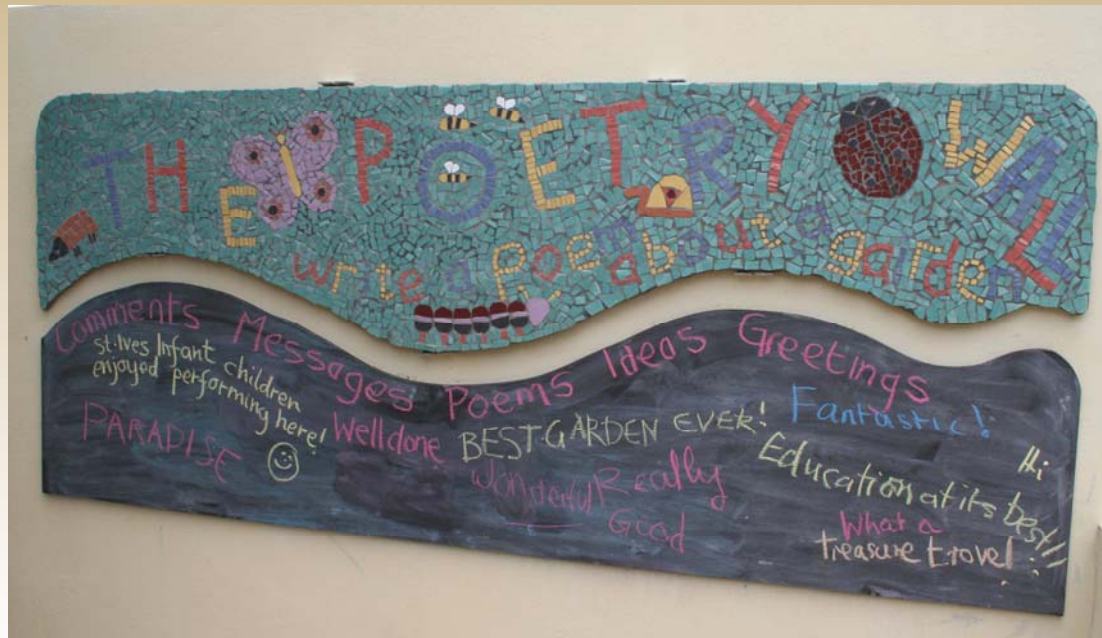 THE POETRY WALL
write a poem about a garden
Comments Messages Poems Ideas Greetings
St. Ives Infant children
enjoyed performing here!
PARADISE
Well done
BEST GARDEN EVER!
Wonderful
Really
Good
Fantastic!
Hi
Education at its best!!
What a
treasure trove!